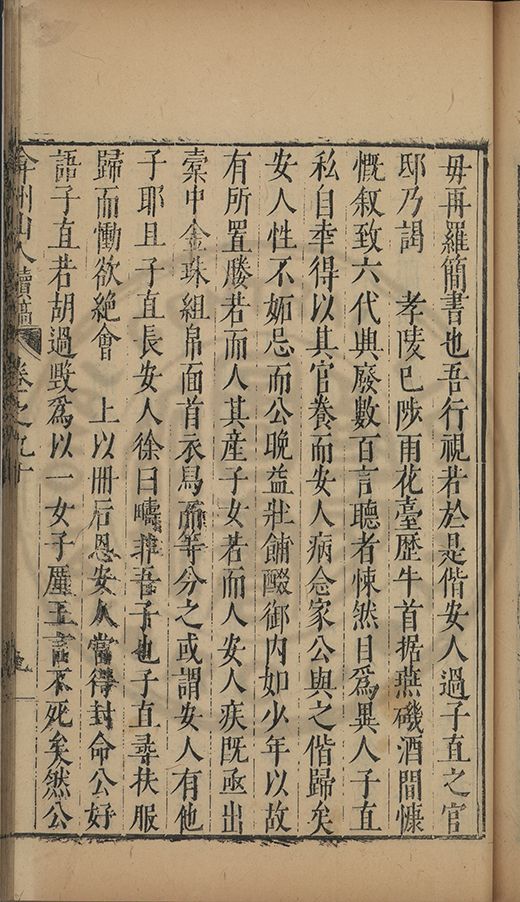 毋再羅簡書也吾行視若於是偕安人過子直之官
邸乃謁　孝陵已陟雨花臺歷牛首據燕磯酒間慷
慨叙致六代興廢數百言聽者悚然目爲異人子直
私自幸得以其官養而安人病念家公與之偕歸矣
安人性不妬忌而公晚益壯餔醊御內如少年以故
有所置媵若而人其産子女若而人安人疾既亟出
槖中金珠組帛面首衣馬而等分之或謂安人有他
子耶且子直長安人徐曰疇非吾子也子直尋扶服
歸而慟欲絶會　上以冊后恩安人當得封命公好
語子直若胡過毀爲以一女子厪王言不死矣然公
弇州山人續稿　卷之九十